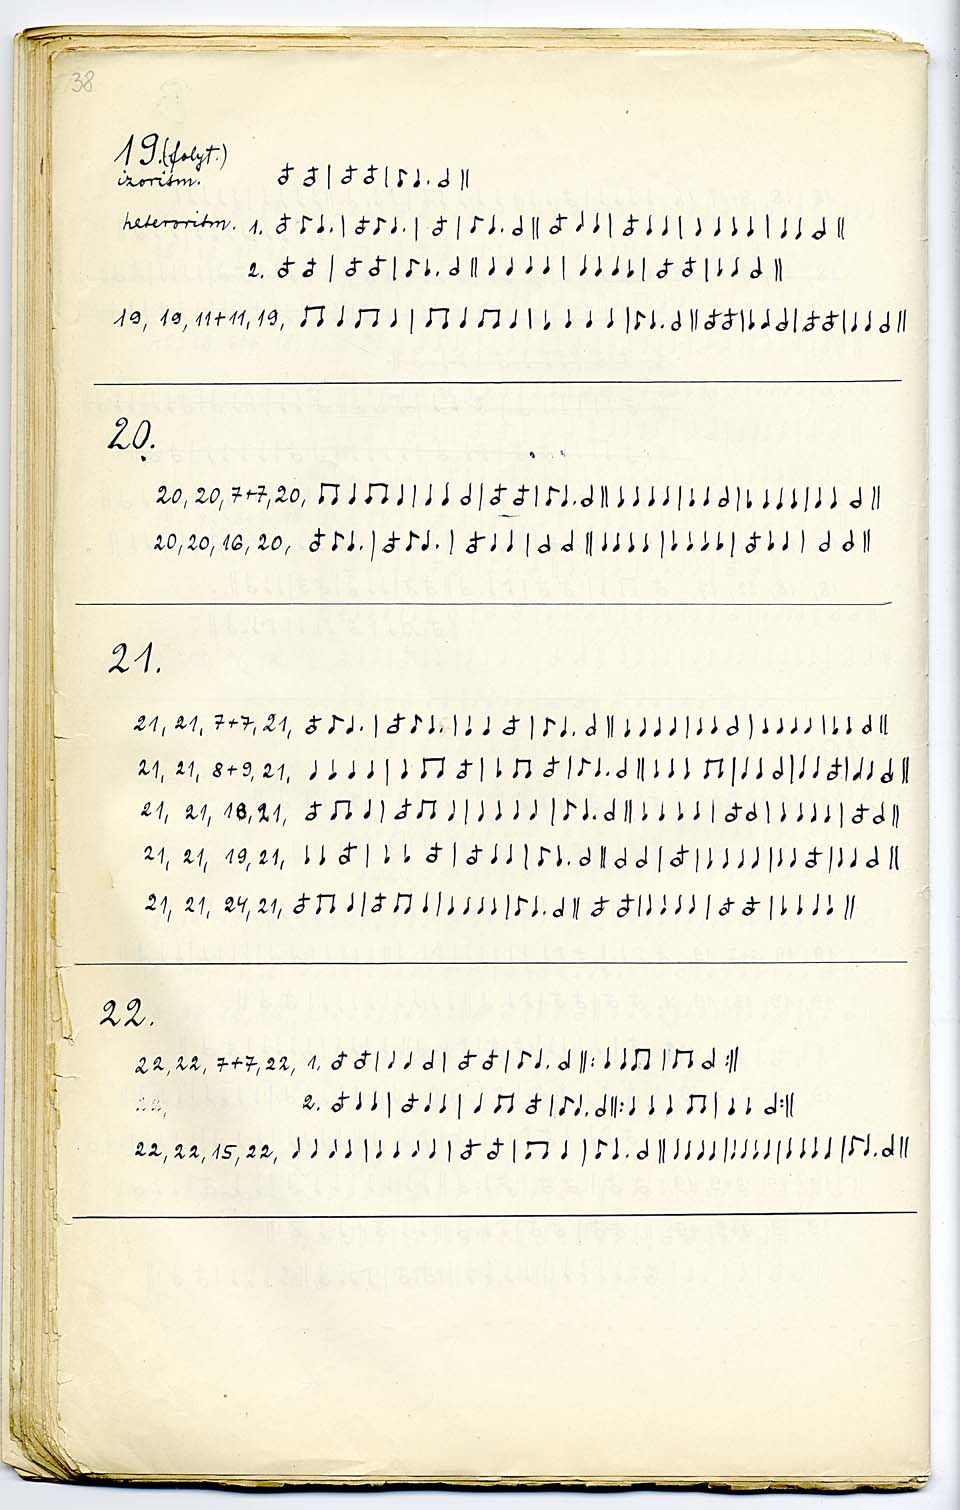 38
19. (folyt.)
izoritm.
heteroritm. 1.
2.
19, 19, 11+11, 19,
20.
20, 20, 7+7, 20,
20, 20, 16, 20,
21.
21, 21, 7+7, 21,
21, 21, 8+9, 21,
21, 21, 18, 21,
21, 21, 19, 21,
21, 21, 24, 21,
22.
22, 22, 7+7, 22, 1.
22, 2.
22, 22, 15, 22,